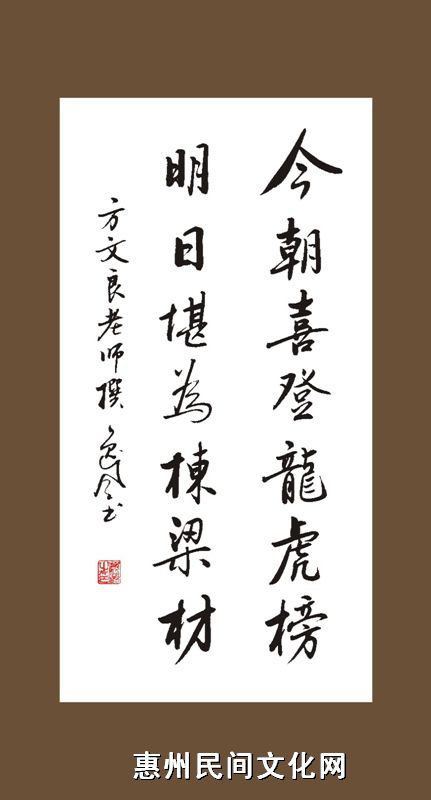 今朝喜登龍虎榜
明日堪為棟梁材
方文良老师撰
惠州民间文化网